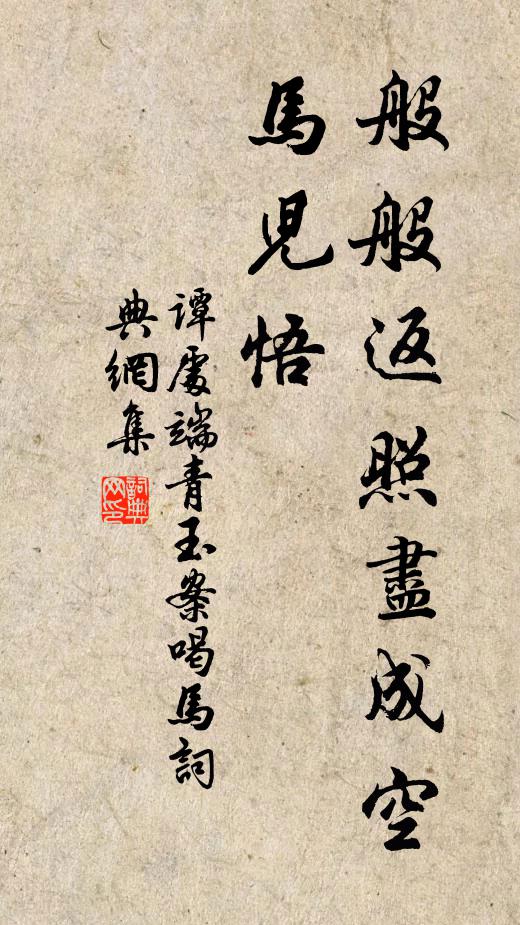 般般返照盡成空
馬兒悟
譚處端青玉案喝馬詞
典網集
詞典網印